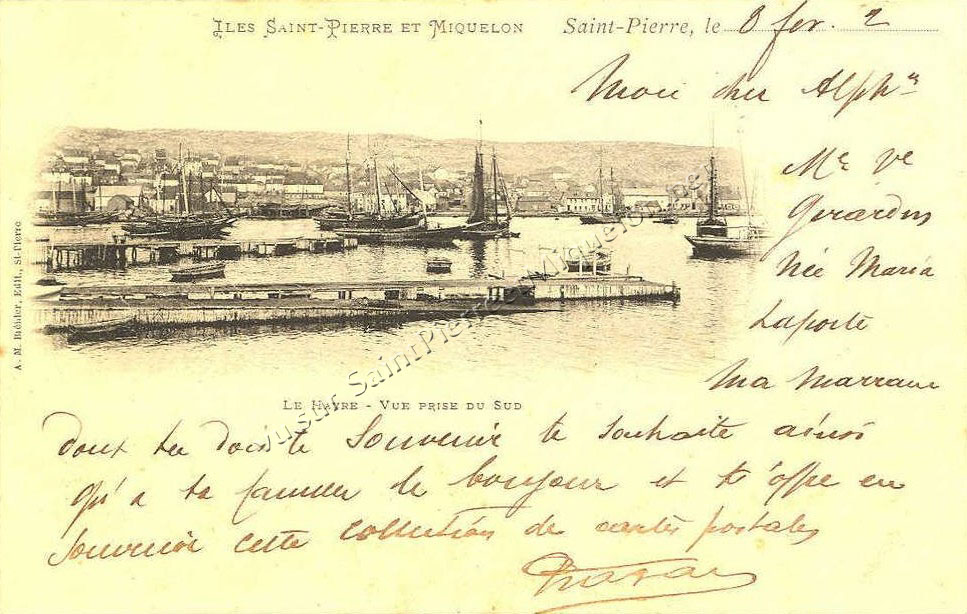 ILES SAINT-PIERRE ET MIQUELON Saint-Pierre, le 8 fev. 2
Mon cher Alph
Me ve
Girardin
Née Maria
Laporte
Ma Marraine
A. M. Bréhier, Edit., St-Pierre
LE HAVRE - VUE PRISE DU SUD
dont tu dois te souvenir te souhaite ainsi
qu'a ta famille le bonjour et t'offre en
Souvenir cette collection de cartes postales